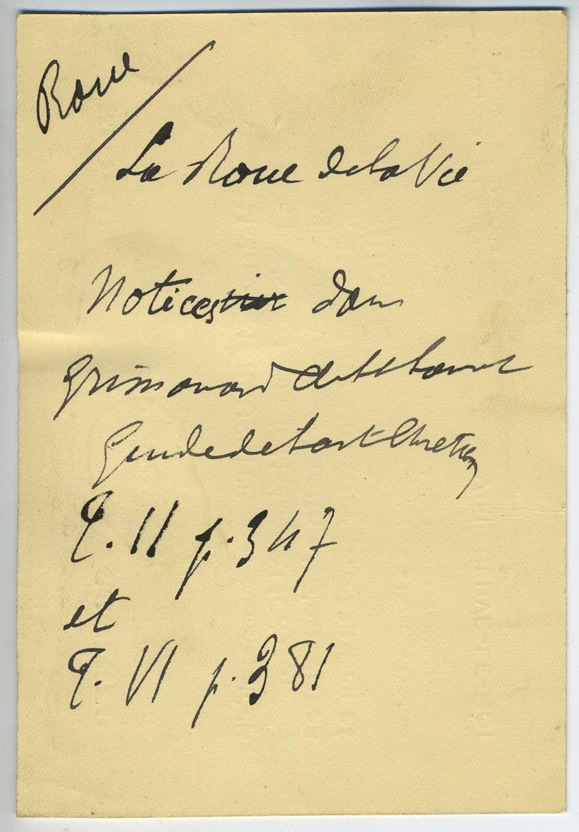 Roue
La Roue de la Vie
Notices sur dans
Grimouard de St Laurent
Guide de l'art Chretien
T. II p. 347
et
T. VI p. 381